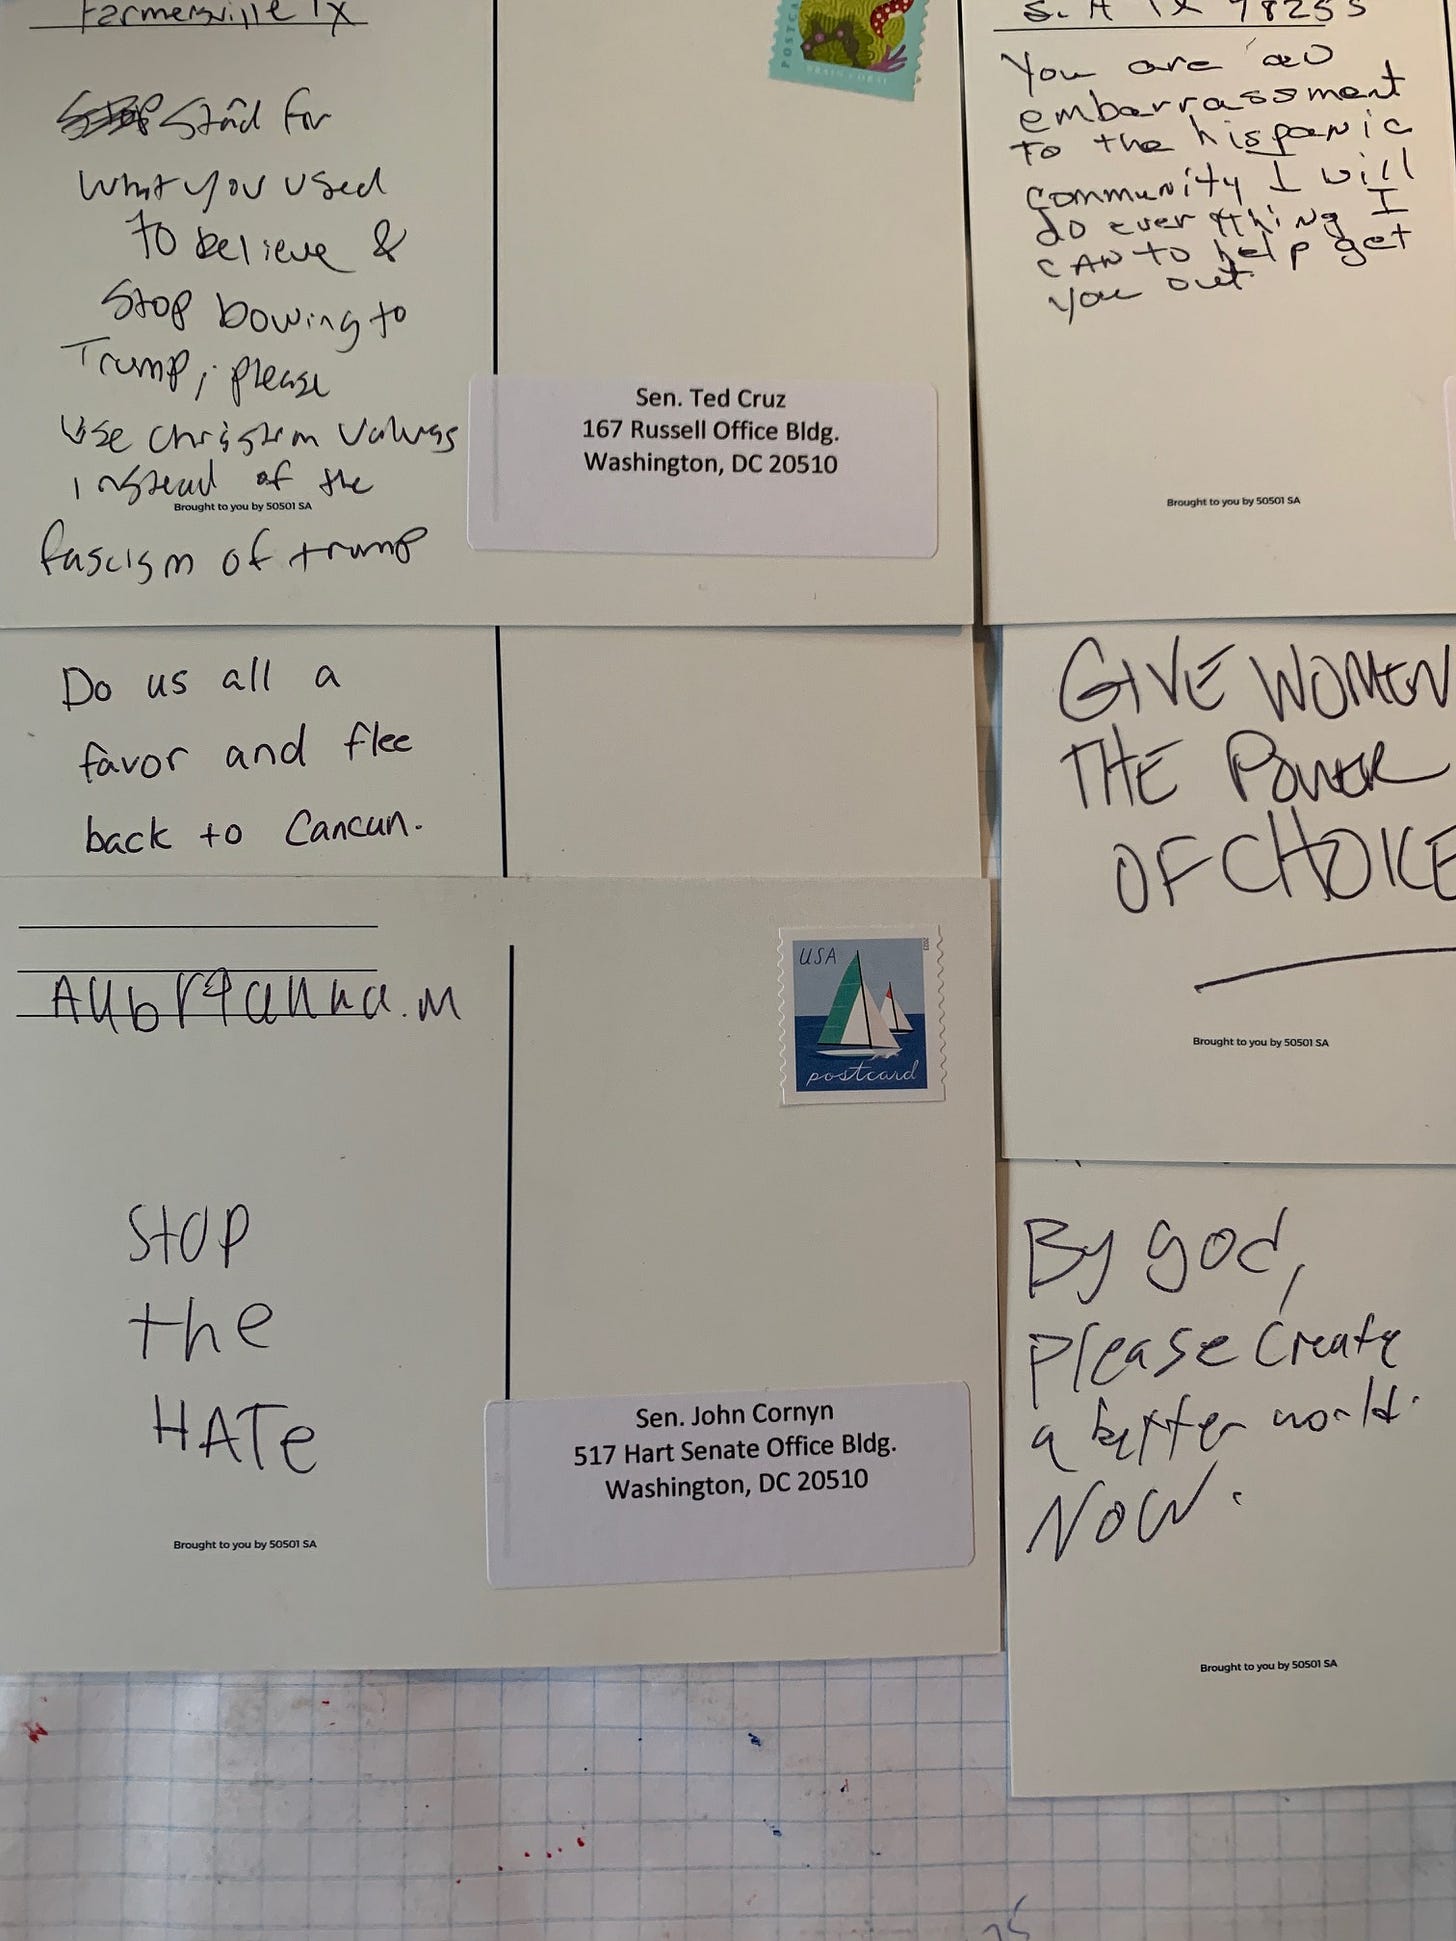 Farmersville TX
Stand for
what you used
to believe &
Stop bowing to
Trump, please
Use Christian Values
instead of the
Brought to you by 50501 SA
fascism of trump
POSTCA
BRAIN CORAL
Sen. Ted Cruz
167 Russell Office Bldg.
Washington, DC 20510
S.A TX 78255
You are an
embarrassment
to the hispanic
community I will
do everything I
CAN to help get
you out
Brought to you by 50501 SA
Do us all a
favor and flee
back to Cancun.
GIVE WOMEN
THE POWER
OF CHOICE
Brought to you by 50501 SA
Aubrianna.M
USA
2023
postcard
STOP
the
HATe
Brought to you by 50501 SA
Sen. John Cornyn
517 Hart Senate Office Bldg.
Washington, DC 20510
By god,
please create
a better world.
NOW.
Brought to you by 50501 SA